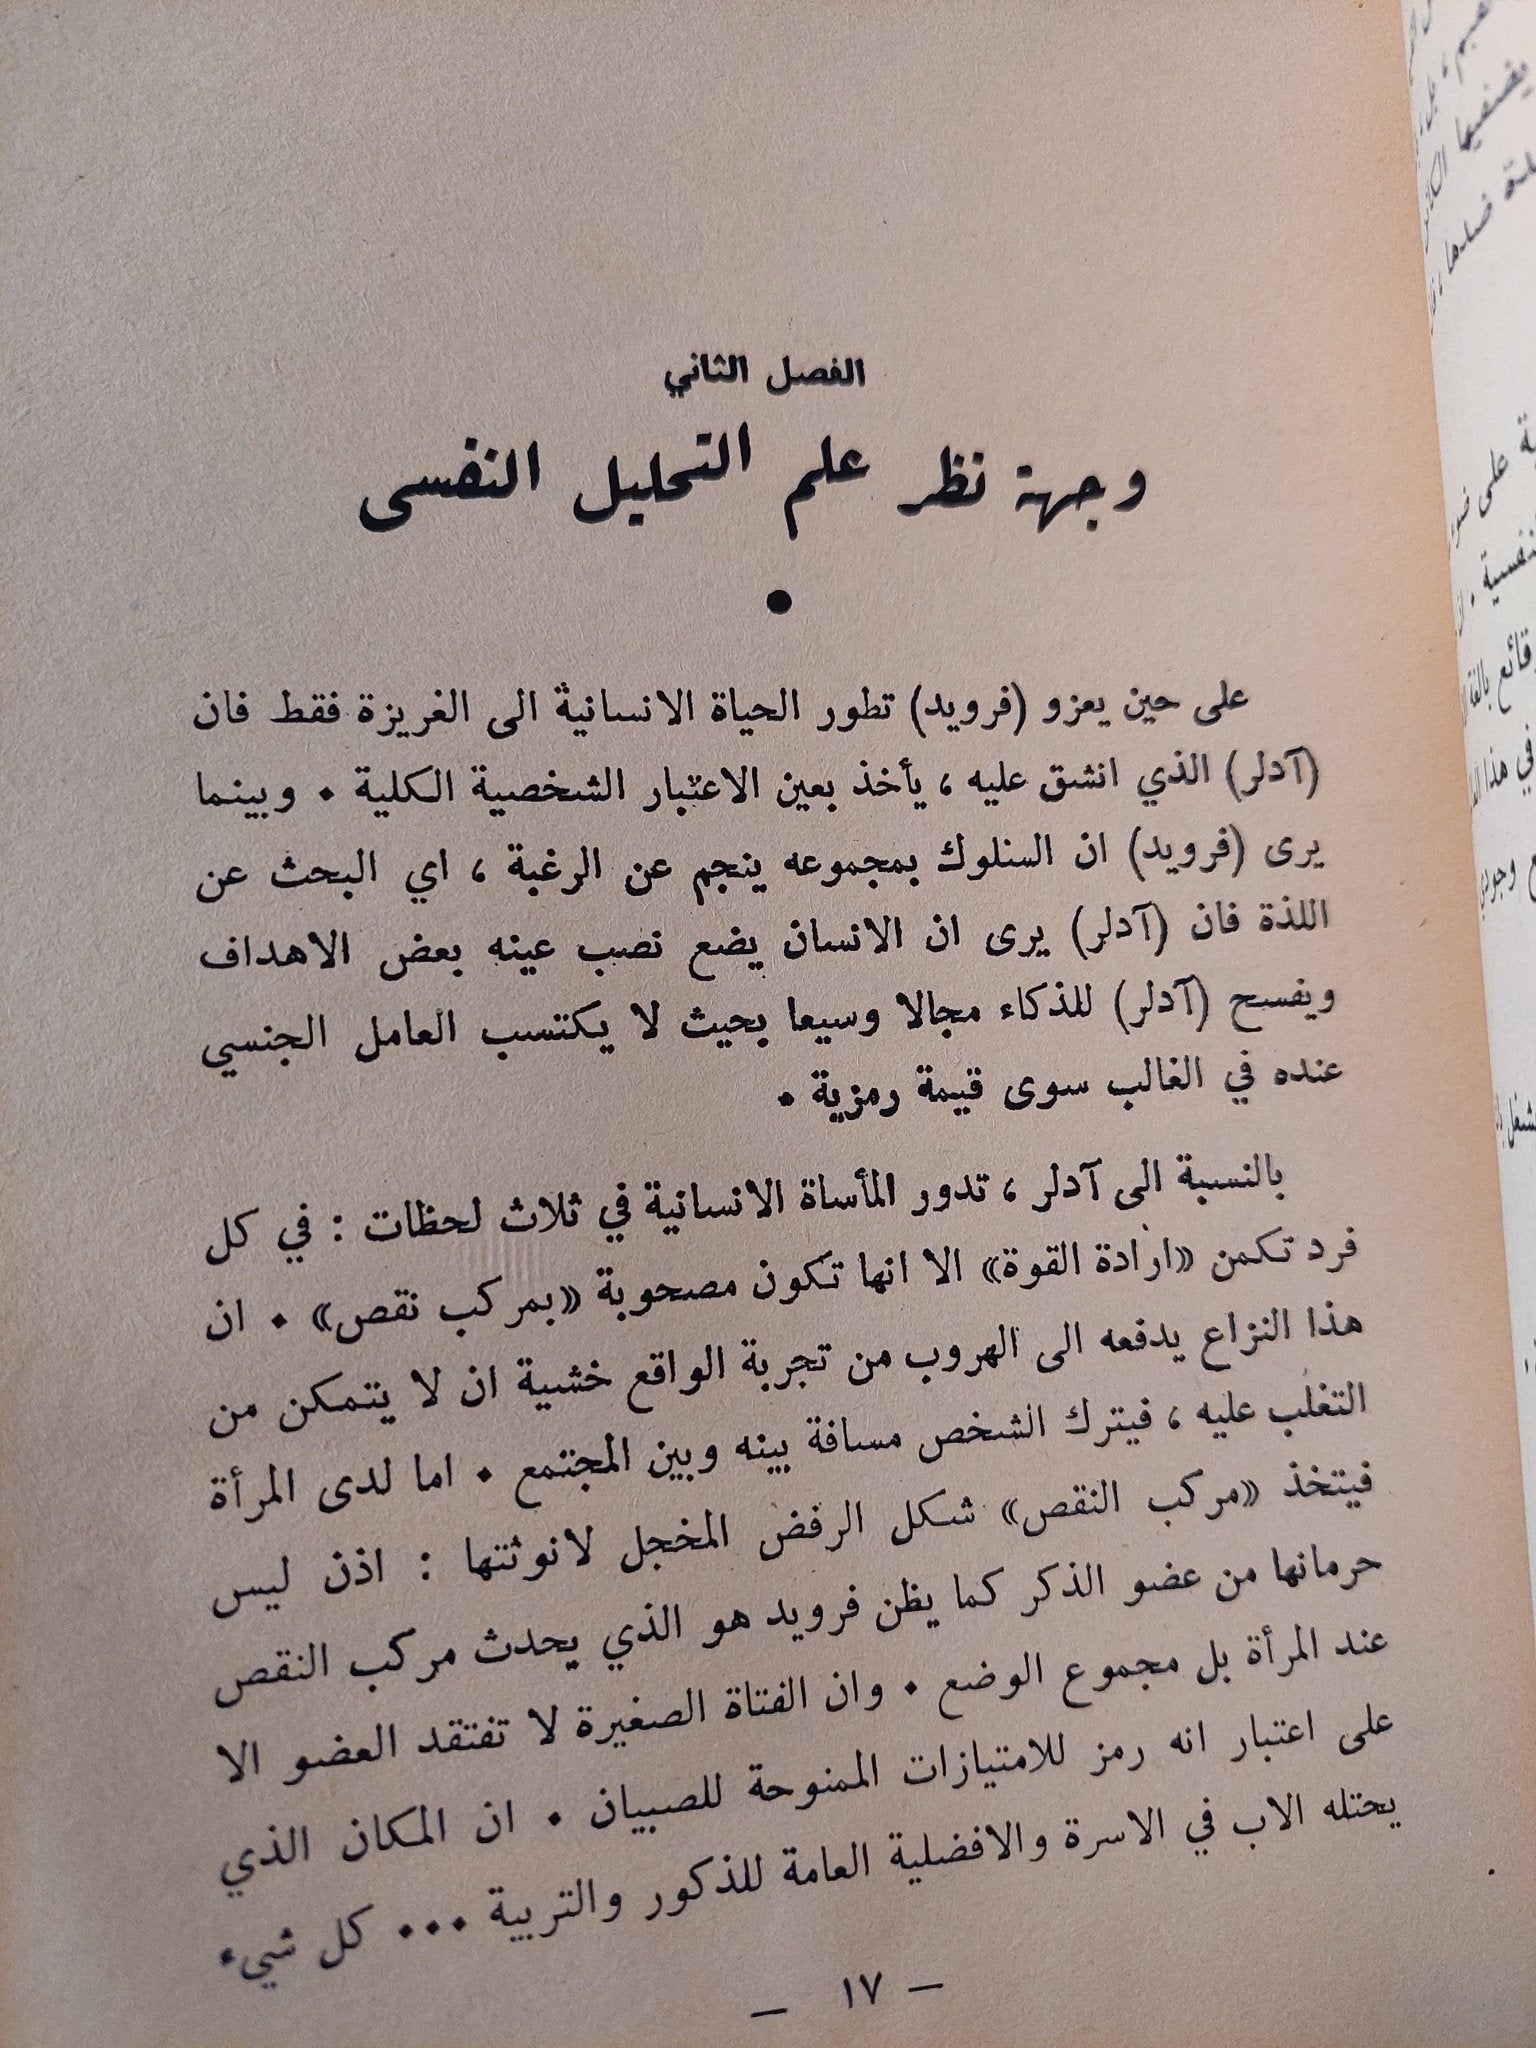 الفصل الثاني
وجهة نظر علم التحليل النفسى
على حين يعزو (فرويد) تطور الحياة الانسانية الى الغريزة فقط فان
(آدلر) الذي انشق عليه ، يأخذ بعين الاعتبار الشخصية الكلية . وبينما
يرى (فرويد) ان السلوك بمجموعه ينجم عن الرغبة ، اي البحث عن
اللذة فان (آدلر) يرى ان الانسان يضع نصب عينه بعض الاهداف
ويفسح (آدلر) للذكاء مجالا وسيعا بحيث لا يكتسب العامل الجنسي
عنده في الغالب سوى قيمة رمزية .
بالنسبة الى آدلر ، تدور المأساة الانسانية في ثلاث لحظات : في كل
فرد تكمن «ارادة القوة» الا انها تكون مصحوبة «بمركب نقص» . ان
هذا النزاع يدفعه الى الهروب من تجربة الواقع خشية ان لا يتمكن من
التغلب عليه ، فيترك الشخص مسافة بينه وبين المجتمع . اما لدى المرأة
فيتخذ «مركب النقص» شكل الرفض المخجل لانوثتها : اذن ليس
حرمانها من عضو الذكر كما يظن فرويد هو الذي يحدث مركب النقص
عند المرأة بل مجموع الوضع . وان الفتاة الصغيرة لا تفتقد العضو الا
على اعتبار انه رمز للامتيازات الممنوحة للصبيان . ان المكان الذي
يحتله الاب في الاسرة والافضلية العامة للذكور والتربية ... كل شيء
— ١٧ —